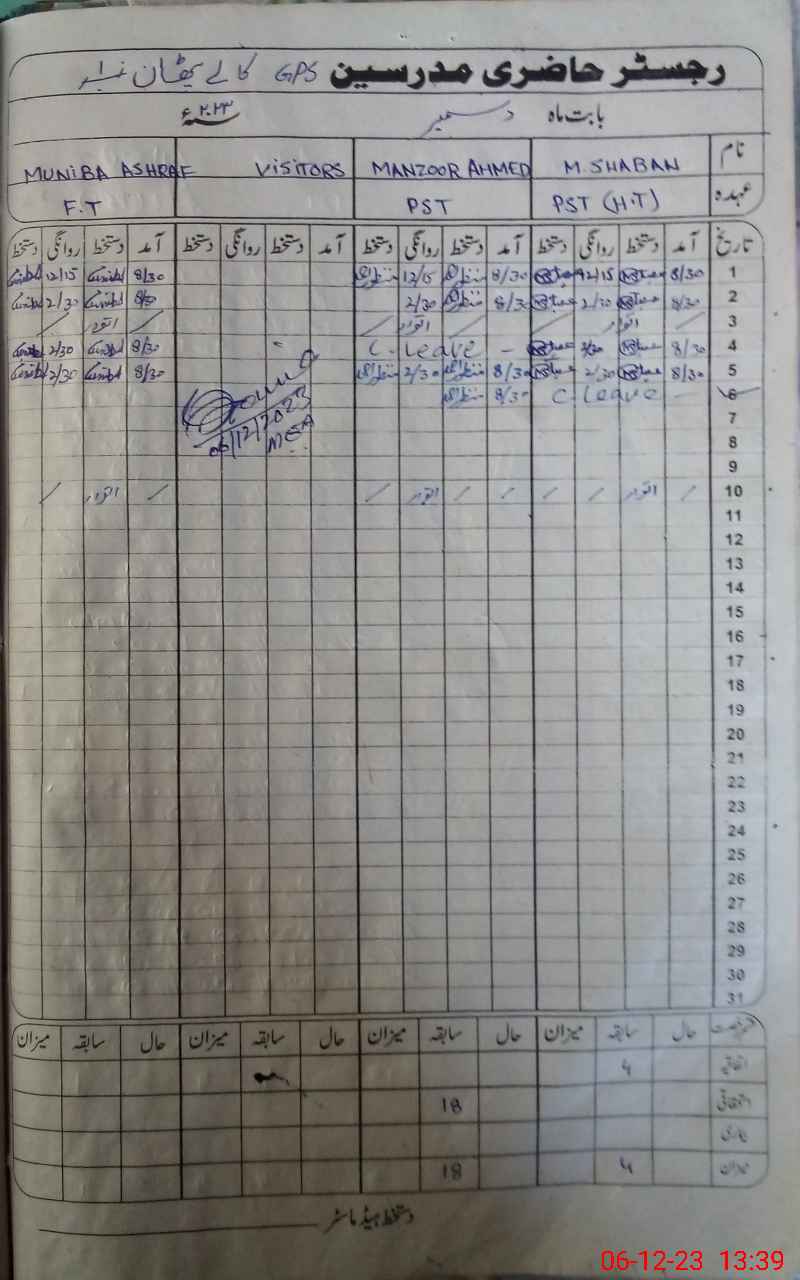 رجسٹر حاضری مدرسین GPS کالے پٹھان نمبر ۱
بابت ماہ دسمبر سنہ ۲۰۲۳ء
نام M. SHABAN MANZOOR AHMED VISITORS MUNIBA ASHRAF
عہدہ PST (H.T) PST F.T
تاریخ آمد دستخط روانگی دستخط آمد دستخط روانگی دستخط آمد دستخط روانگی دستخط آمد دستخط روانگی دستخط
1 8/30 12/15 8/30 12/15 8/30 12/15
2 8/30 2/30 8/30 2/30 8/30 2/30
3 اتوار اتوار اتوار
4 8/30 2/30 C. Leave - 8/30 2/30
5 8/30 2/30 8/30 2/30 8/30 2/30
6 C. Leave - 8/30
06/12/2023
MEA
7
8
9
10 اتوار اتوار اتوار
11
12
13
14
15
16
17
18
19
20
21
22
23
24
25
26
27
28
29
30
31
رخصت حال سابقہ میزان حال سابقہ میزان حال سابقہ میزان حال سابقہ میزان
اتفاقیہ
استحقاقی 18
بیماری
میزان 18
دستخط ہیڈ ماسٹر
06-12-23 13:39